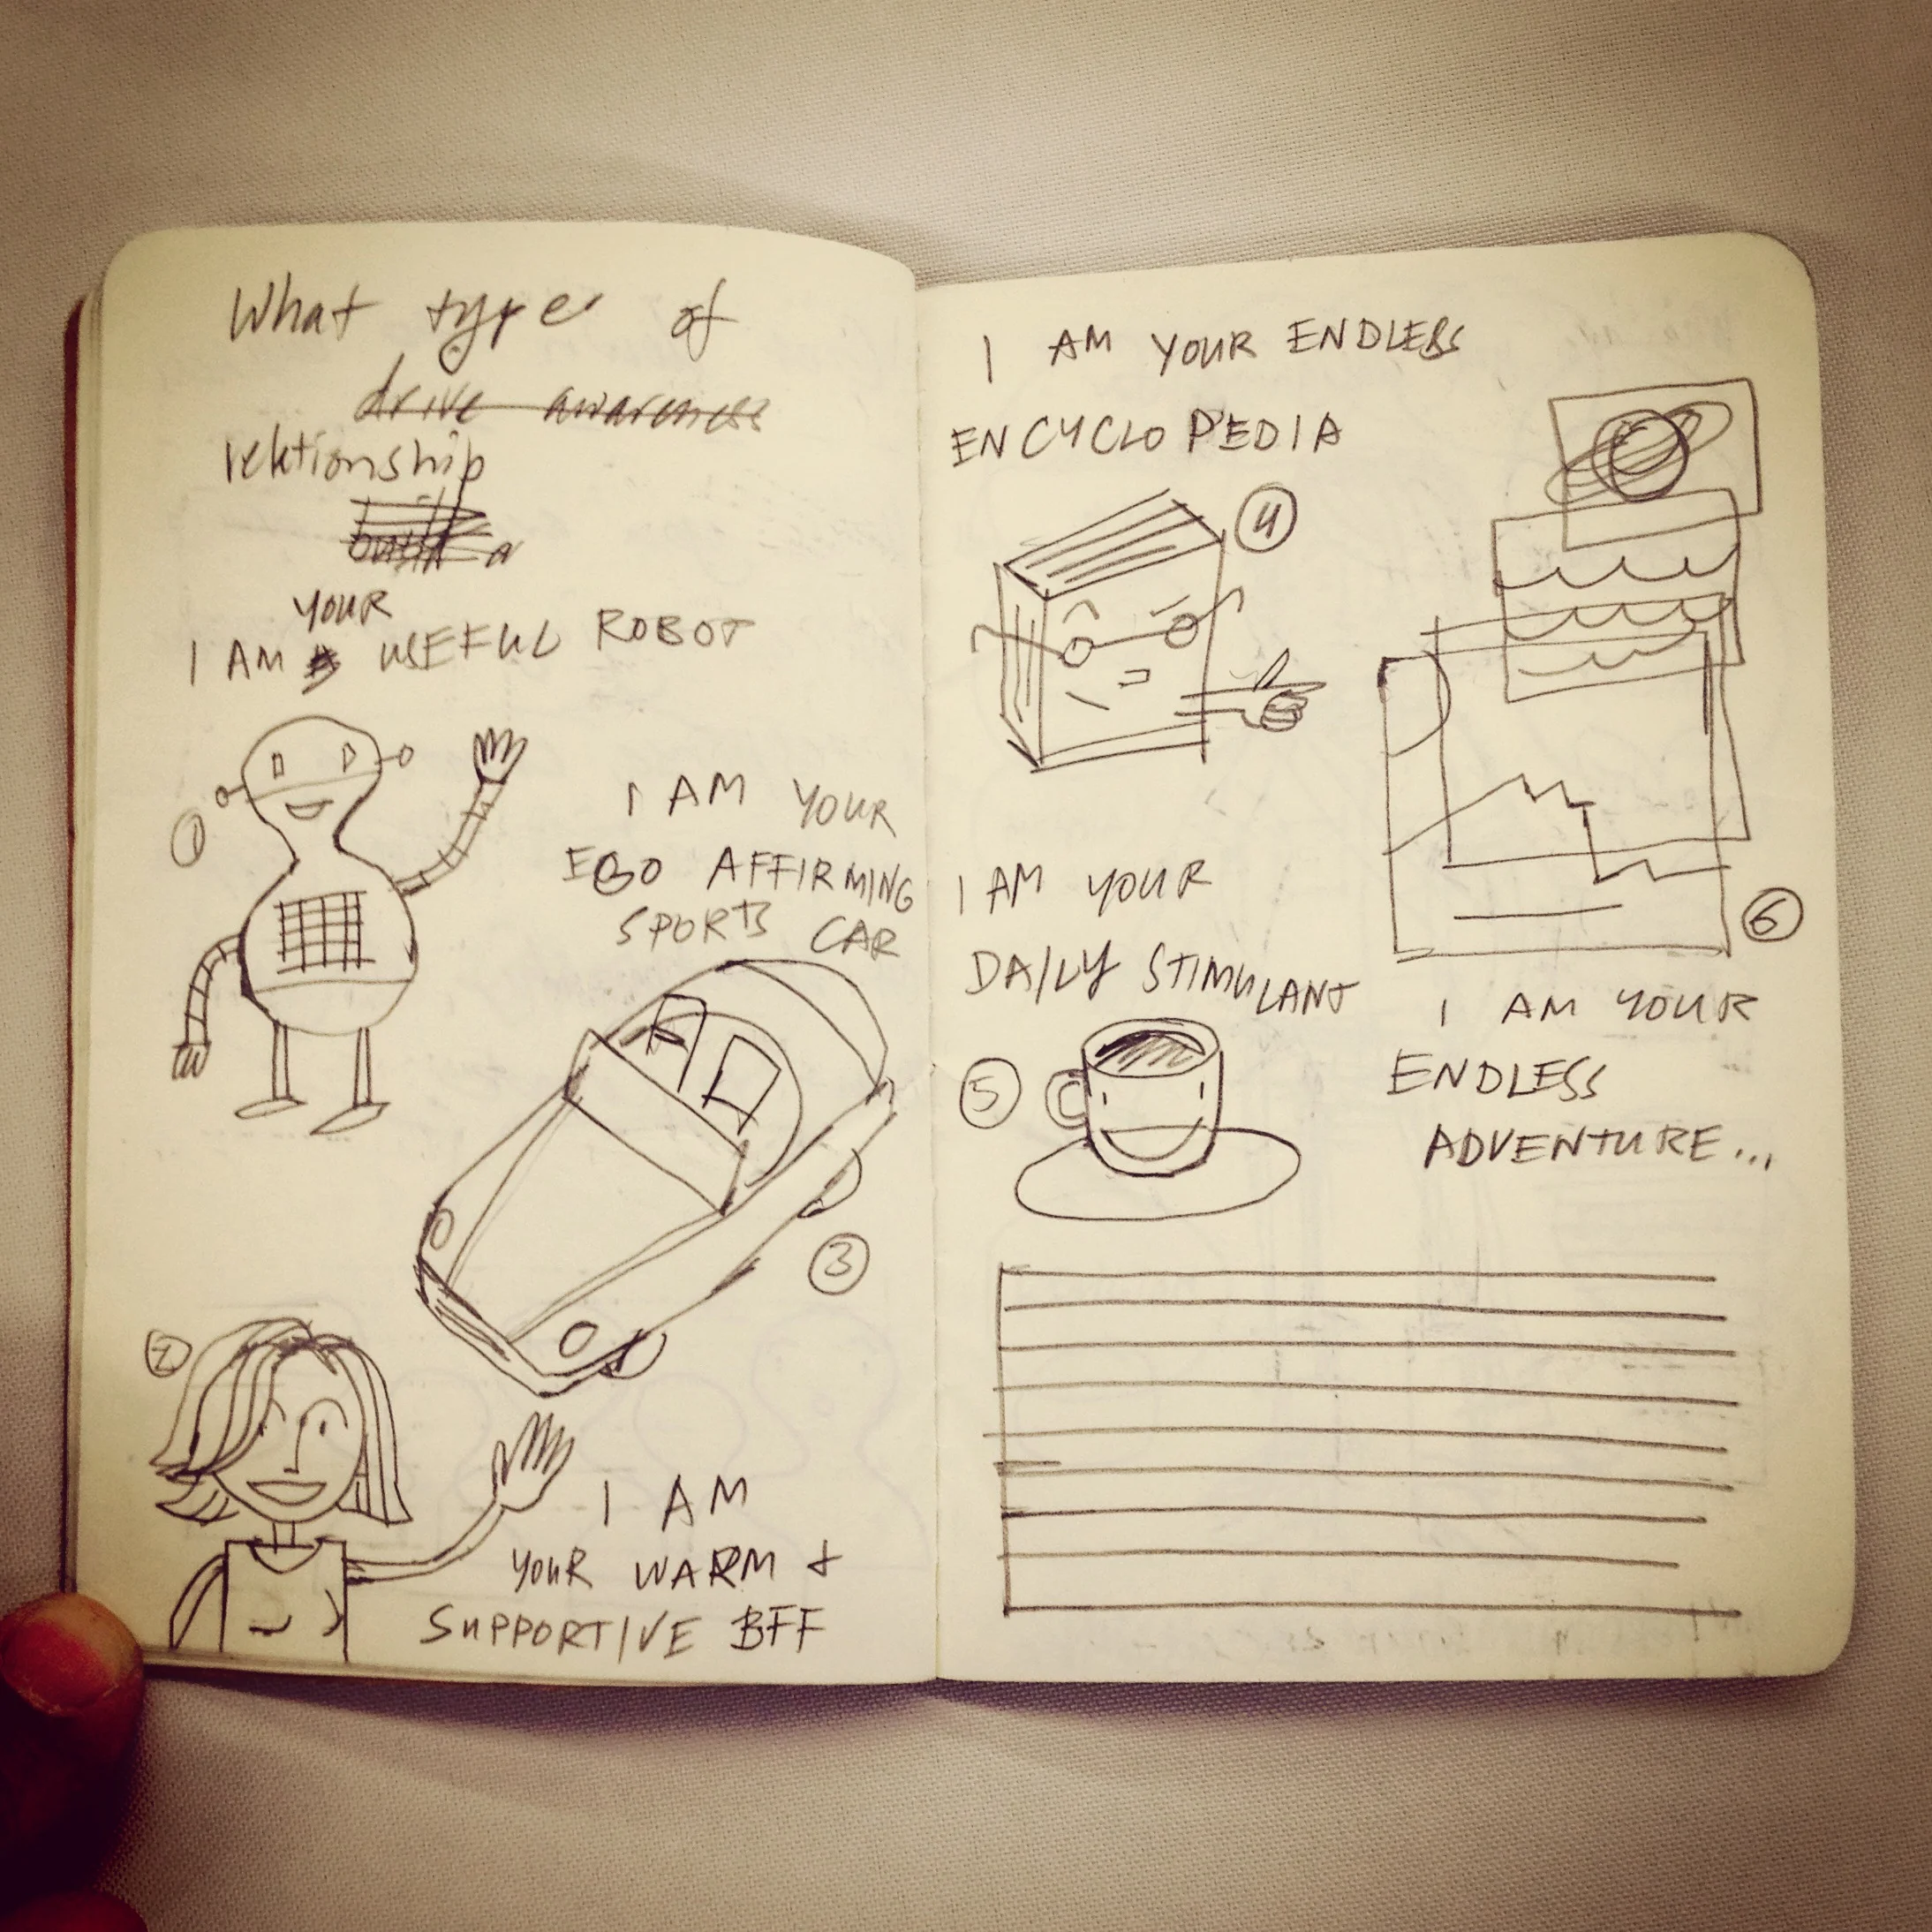 What type of
drive awareness
relationship
build a
YOUR
I AM A USEFUL ROBOT
1
I AM YOUR
EGO AFFIRMING
SPORTS CAR
3
2
I AM
YOUR WARM +
SUPPORTIVE BFF
I AM YOUR ENDLESS
ENCYCLOPEDIA
4
6
I AM YOUR
DAILY STIMULANT
5
I AM YOUR
ENDLESS
ADVENTURE...